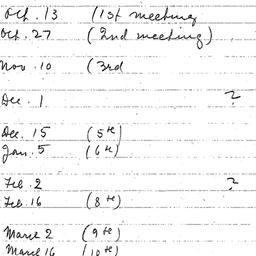 Oct. 13 (1st meeting
Oct. 27 (2nd meeting)
Nov. 10 (3rd
Dec. 1 ?
Dec. 15 (5th)
Jan. 5 (6th)
Feb. 2 ?
Feb. 16 (8th)
March 2 (9th)
March 16 (10th)